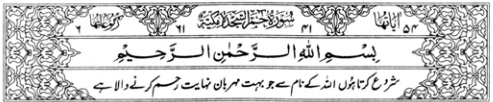 آیاتها ۵۴ ۴۱ سُوْرَةُ حٰمٓ السَّجْدَة مَكِّیَّةٌ ۶۱ رکوعاتها ۶
بِسْمِ اللهِ الرَّحْمٰنِ الرَّحِيْمِ
شروع کرتا ہوں اللہ کے نام سے جو بہت مہربان نہایت رحم کرنے والا ہے